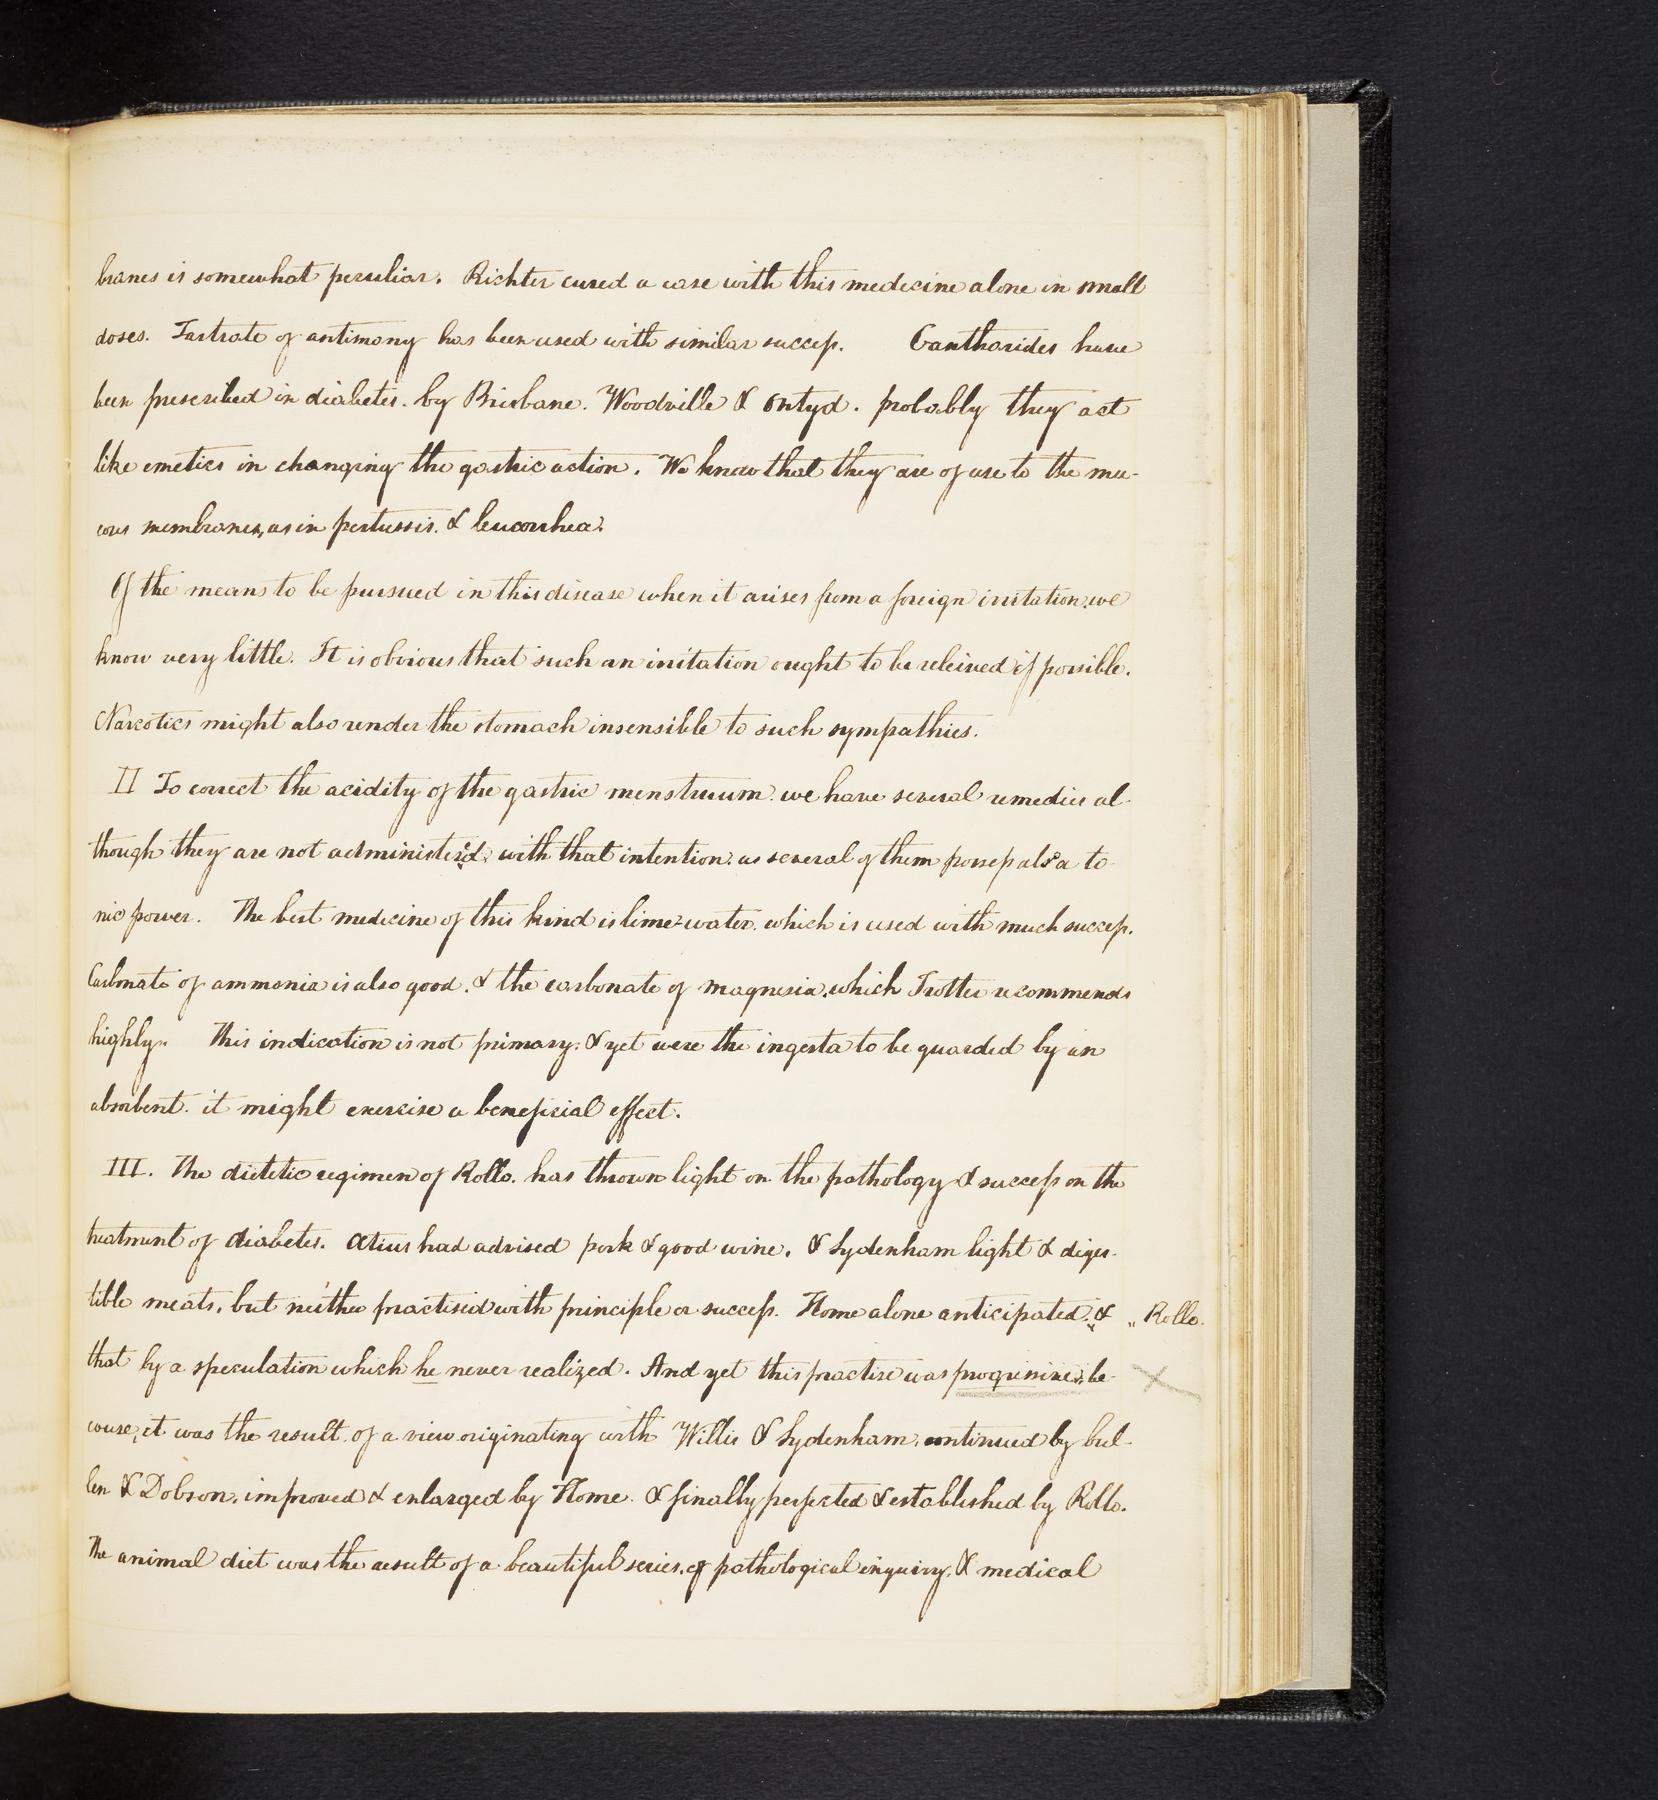 branes is somewhat peculiar. Richter cured a case with this medicine alone in small
doses. Tartrate of antimony has been used with similar success. Cantharides have
been prescribed in diabetes. by Brisbane. Woodville & Ontyd. probably they act
like emetics in changing the gastric action. We know that they are of use to the mu-
cous membranes, as in pertussis. & leucorrhea.
Of the means to be pursued in this disease when it arises from a foreign irritation. we
know very little. It is obvious that such an irritation ought to be releived if possible.
Narcotics might also render the stomach insensible to such sympathies.
II To correct the acidity of the gastric menstruum. we have several remedies al-
though they are not administer'd, with that intention. as several of them possess also a to-
nic power. The best medicine of this kind is lime-water. which is used with much success.
Carbonate of ammonia is also good. & the carbonate of magnesia, which Trotter recommends
highly. This indication is not primary. & yet were the ingesta to be guarded by an
absorbent. it might exercise a beneficial effect.
III. The dietetic regimen of Rollo. has thrown light on the pathology & success on the
treatment of diabetes. Ætius had advised pork & good wine. & Sydenham light & diges-
tible meats, but neither practised with principle or success. Home alone anticipated. & „ Rollo.
that by a speculation which he never realized. And yet this practise was progressive, be-
cause, it was the result of a view originating with Willis & Sydenham. continued by Cul-
len & Dobson. improved & enlarged by Home. & finally perfected & established by Rollo.
The animal diet was the result of a beautiful series. of pathological inquiry. & medical